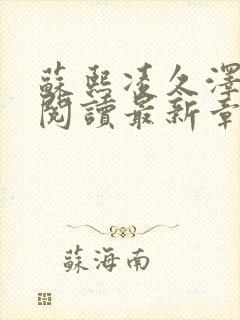 蘇熙凌久澤
閱讀最新章
蘇海南